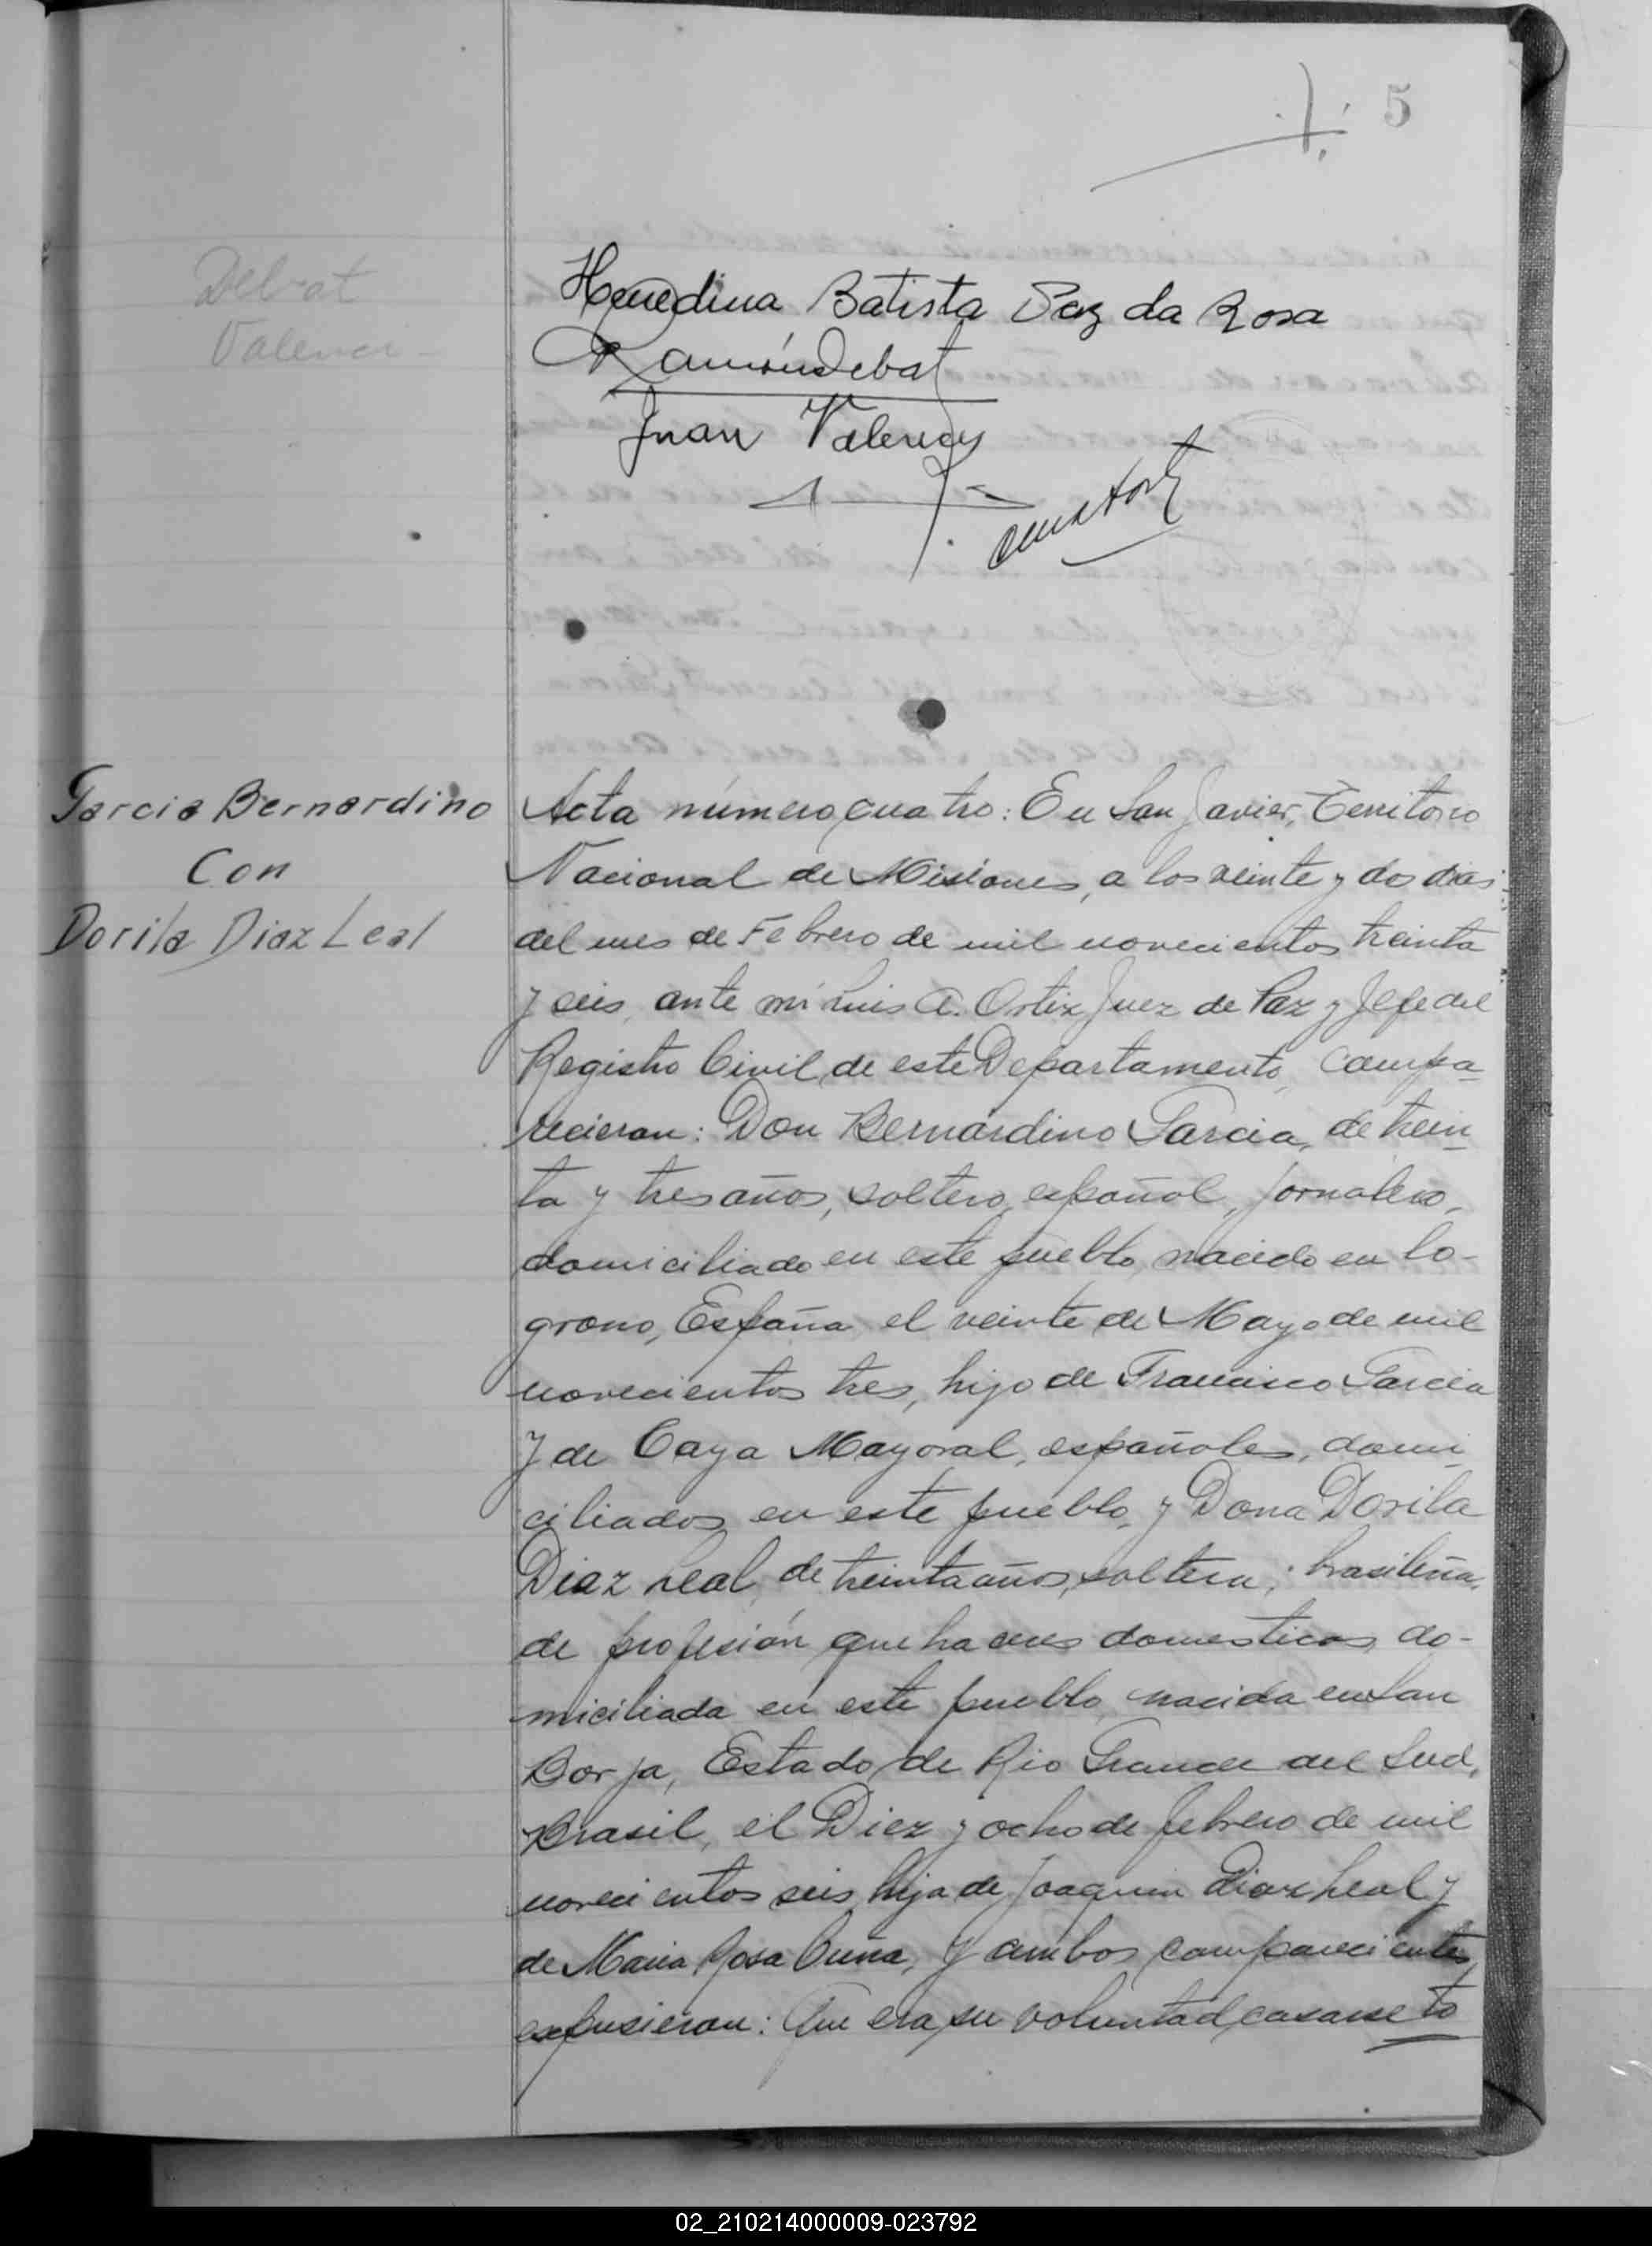 5
Debat
Valency
Henedina Batista Paz da Rosa
Ramón Debat
Juan Valency
Garcia Bernardino
Con
Dorila Diaz Leal
Acta número cuatro: En San Javier, Territorio
Nacional de Misiones, a los veinte y dos dias
del mes de Febrero de mil novecientos treinta
y seis, ante mí Luis A. Ortiz Juez de Paz y Jefe del
Registro Civil de este Departamento, Compa-
recieron: Don Bernardino Garcia, de trein-
ta y tres años, soltero, español, jornalero,
domiciliado en este pueblo, nacido en Lo-
grono, España el veinte de Mayo de mil
novecientos tres, hijo de Francisco Garcia
y de Caya Mayoral, españoles, domi-
ciliados en este pueblo, y Dona Dorila
Diaz Leal, de treinta años, soltera, brasileña,
de profesión quehaceres domesticos, do-
miciliada en este pueblo, nacida en San
Borja, Estado de Rio Grande del Sud,
Brasil, el Diez y ocho de febrero de mil
novecientos seis, hija de Joaquin Diaz Leal y
de Maria Rosa Cuña, y ambos comparecientes
expusieron: Que era su voluntad casarse to
02_210214000009-023792